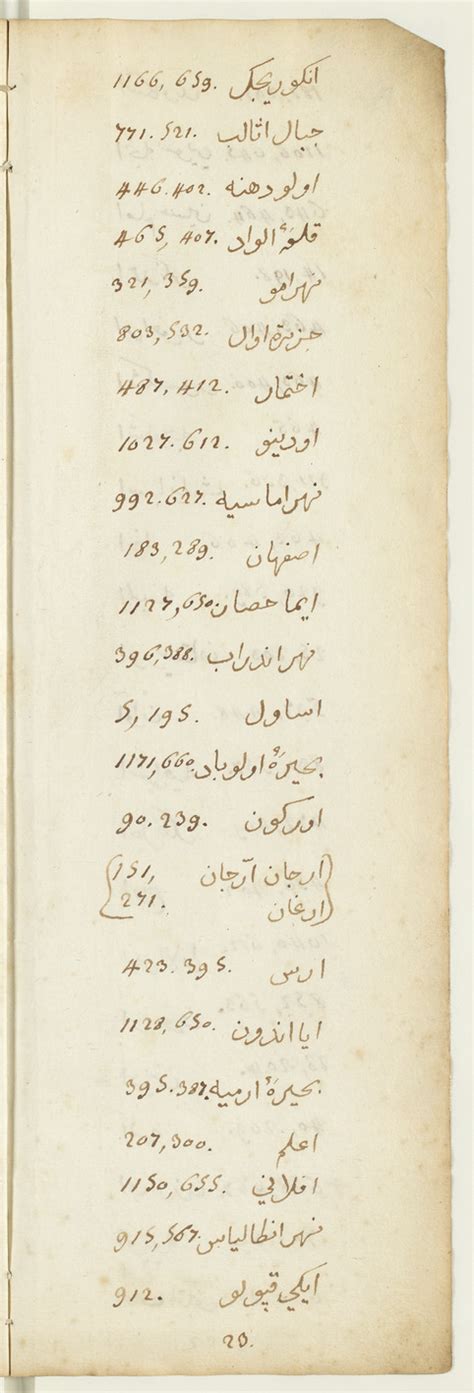 انكوريجك 1166, 659.
جبال اثالب 771. 521.
اولو دهنه 446. 402.
قلعهٔ الواد 465, 407.
نهر امو 321, 359.
جزيرة اوال 803, 532.
اختمار 487, 412.
اودينو 1027. 612.
نهر اماسيه 992. 627.
اصفهان 183, 289.
ايما حصان 1127, 650.
نهر اندراب 396, 388.
اساول 5, 195.
بحيرهٔ اولوباد 1171, 660.
اوركون 90. 239.
ارجان آرّجان 151,
ارغان 271.
ارس 423. 395.
ايا اندرون 1128, 650.
بحيرهٔ ارميه 395. 387.
اعلم 207, 300.
افلاني 1150, 655.
نهر انطالياس 915, 567.
ايكي قپولو 912.
23.